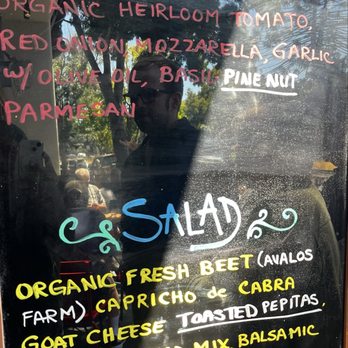 ORGANIC HEIRLOOM TOMATO,
RED ONION, MOZZARELLA, GARLIC
W/ OLIVE OIL, BASIL, PINE NUT
PARMESAN
SALAD
ORGANIC FRESH BEET (AVALOS
FARM) CAPRICHO de CABRA
GOAT CHEESE TOASTED PEPITAS,
MIX BALSAMIC